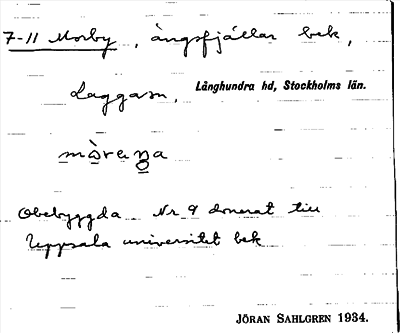 7-11 Morby, ängsfjällar bek,
Laggam, Långhundra hd, Stockholms län.
mò̱rena
Obebyggda Nr 9 donerat till
Uppsala universitet bek
JÖRAN SAHLGREN 1934.